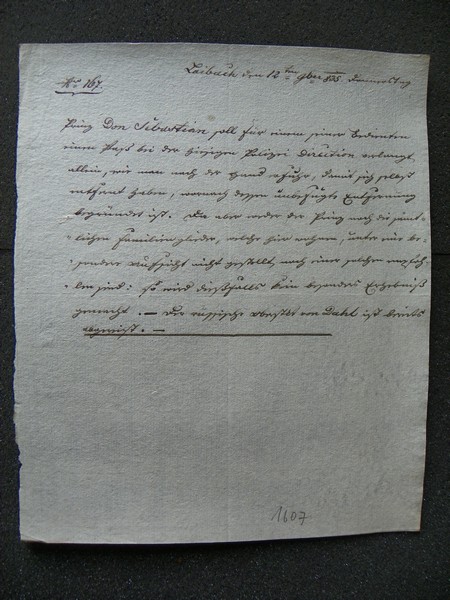 Laibach den 12ten 9ber 835 Donnerstag
No 167.
Prinz Don Sebastian soll für einen seiner Bedienten
einen Paß bei der hiesigen Polizei Direction verlangt,
allein, wie man nach der Hand erfuhr, damit sich selbst
entfernt haben, wornach dessen unbefugte Entfernung
begründet ist. Da aber weder der Prinz noch die sämt-
lichen Familienglieder, welche hier wohnen, unter eine be-
sondere Aufsicht nicht gestellt, noch einer solchen empfoh-
len sind: so wird dießfalls kein besonderes Ergebniß
gemacht. — Der russische Oberst von Dahl ist bereits
abgereist. —
1607